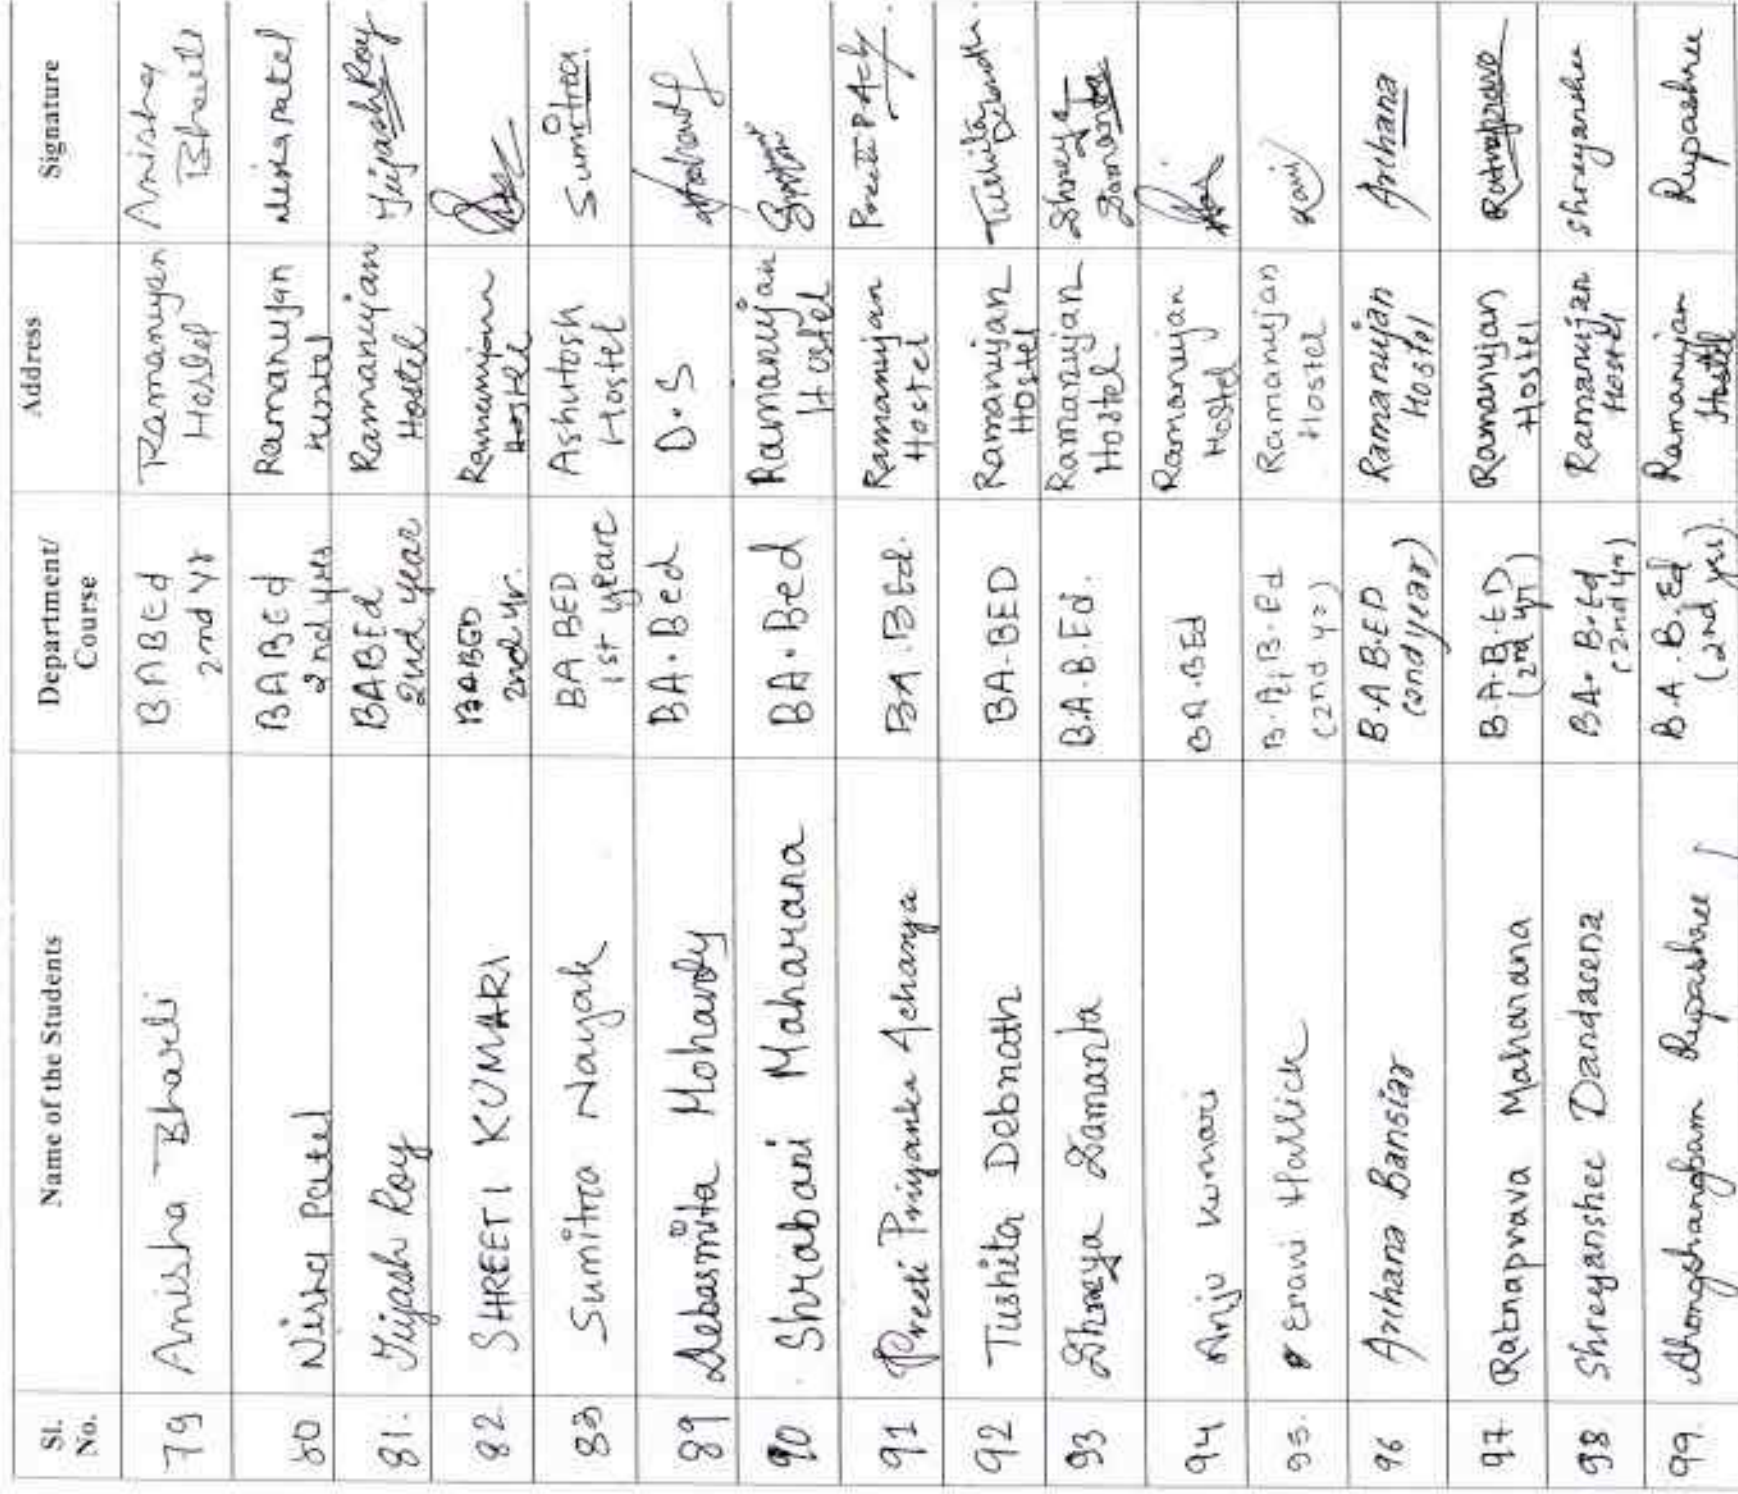 Sl. No.
Name of the Students
Department/ Course
Address
Signature
79
Anisha Bharti
BABEd
2nd Yr
Ramanujan
Hostel
Anisha
Bharti
80
Nisha Patel
BABEd
2nd yrs
Ramanujan
Hostel
Nisha Patel
81.
Tijash Roy
BABEd
2nd year
Ramanujan
Hostel
Tijash Roy
82
SHREETI KUMARI
BABED
2nd yr.
Ramanujan
Hostel
83
Sumitra Nayak
BA BED
1st year
Ashutosh
Hostel
Sumitra
89
Debasmita Mohanty
BA.Bed
D.S
90
Shrabani Maharana
BA.Bed
Ramanujan
Hostel
91
Preeti Priyanka Acharya
BA.BEd.
Ramanujan
Hostel
Preeti P Ach.
92
Tushita Debnath
BA.BED
Ramanujan
Hostel
Tushita
Debnath
93
Shreya Samanta
B.A.B.Ed.
Ramanujan
Hostel.
Shreya
Samanta
94
Anju Kumari
BA.BEd
Ramanujan
Hostel
95.
Erani Hallick
B.A, B.Ed
(2nd yr)
Ramanujan
Hostel
96
Archana Bansiar
B.A B.ED
(2nd year)
Ramanujan
Hostel
Archana
97
Ratnaprava Maharana
B.A.B.ED
(2nd yr)
Ramanujan
Hostel
Ratnaprava
98
Shreyanshee Dandasena
BA. B.Ed
(2nd yr)
Ramanujan
Hostel
Shreyanshee
99.
Ahongshangbam Rupashree
B.A.B.Ed
(2nd yrs).
Ramanujan
Hostel
Rupashree